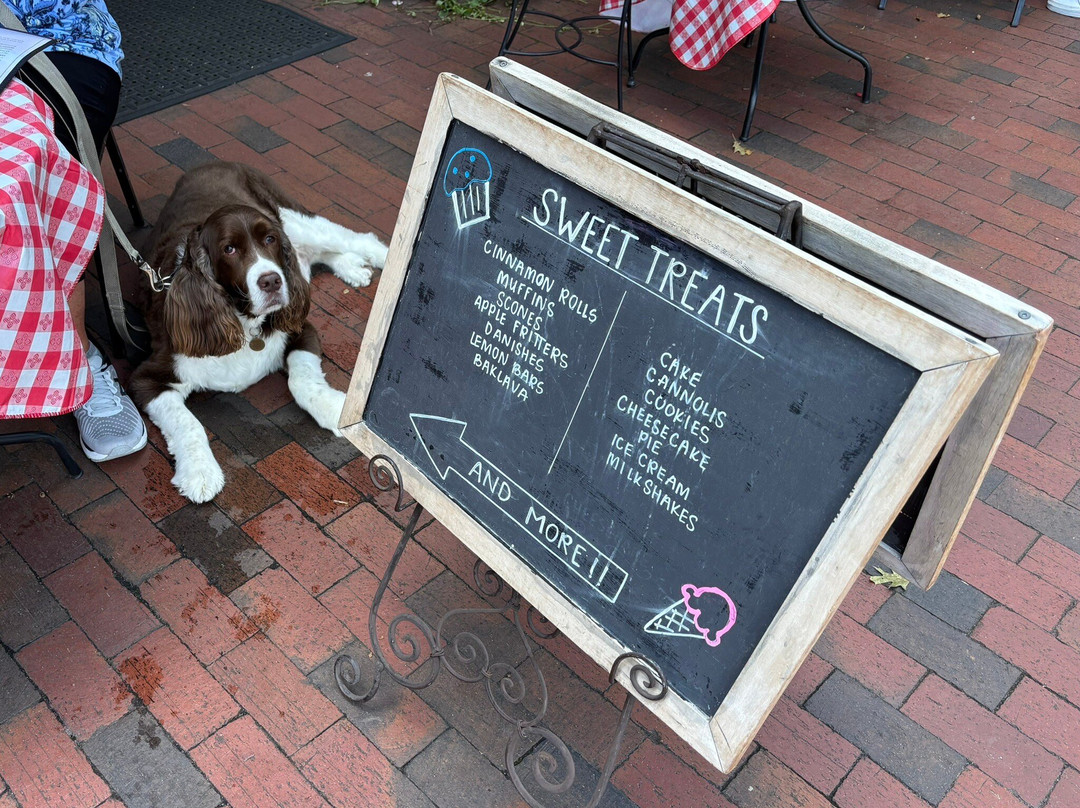 SWEET TREATS
CINNAMON ROLLS
MUFFINS
SCONES
APPLE FRITTERS
DANISHES
LEMON BARS
BAKLAVA
CAKE
CANNOLIS
COOKIES
CHEESECAKE
PIE
ICE CREAM
MILKSHAKES
AND MORE!!